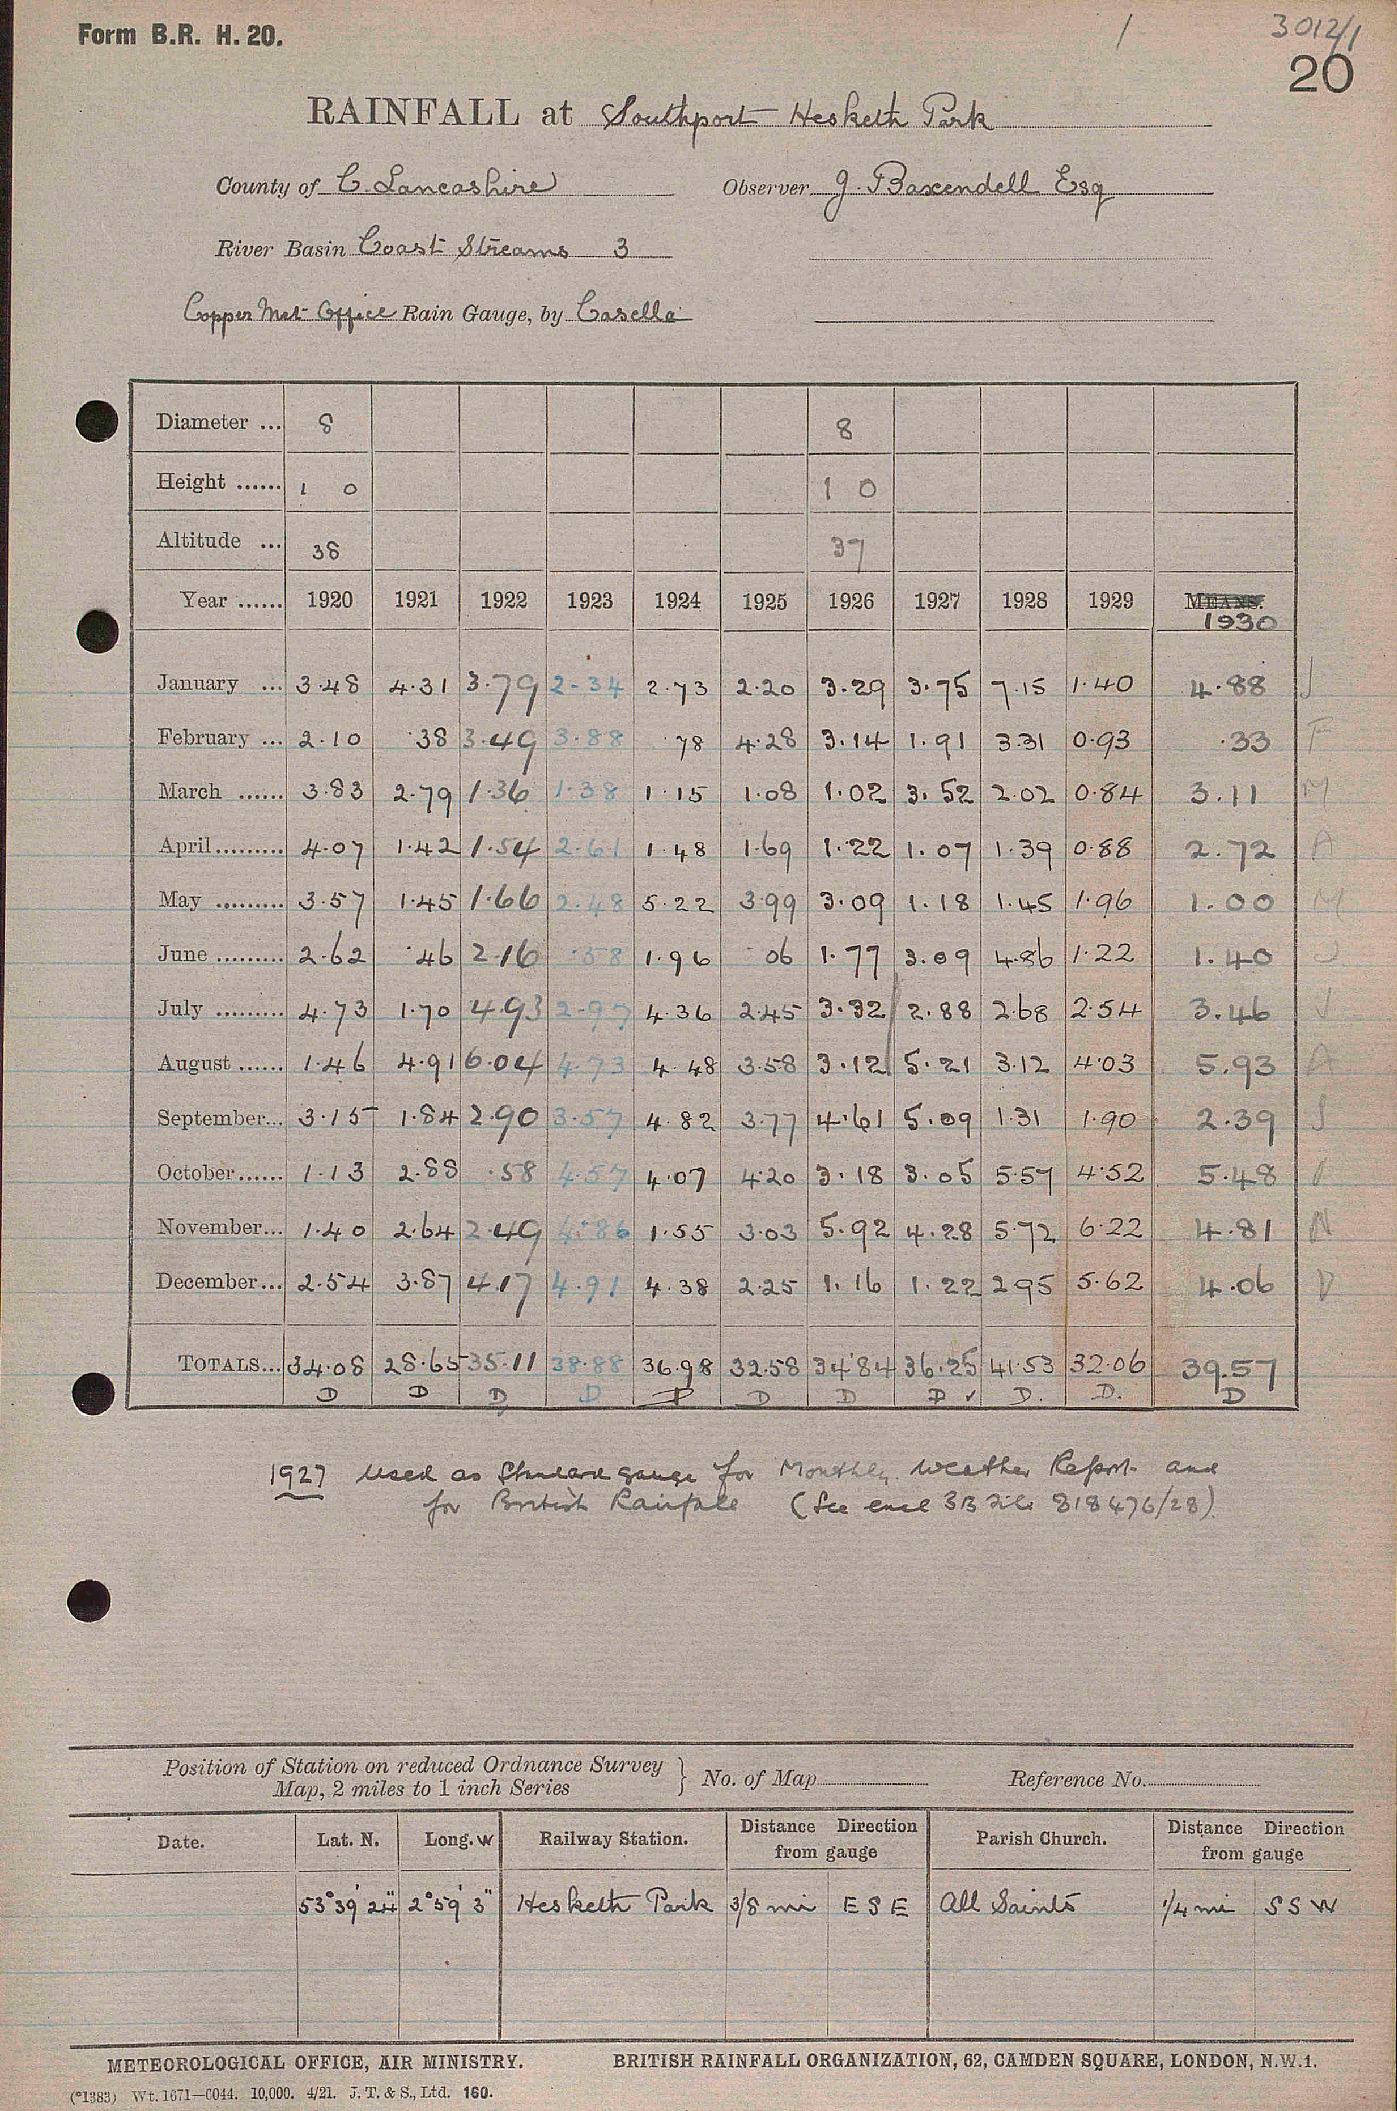 Form B.R. H. 20.
1
3012/1
20
RAINFALL at Southport Hesketh Park
County of C. Lancashire Observer J. Baxendell Esq
River Basin Coast Streams 3
Copper Met Office Rain Gauge, by Casella
Diameter ... 8 8
Height ...... 1 0 1 0
Altitude ... 38 37
Year ...... 1920 1921 1922 1923 1924 1925 1926 1927 1928 1929 MEANS.
1930
January ... 3.48 4.31 3.79 2.34 2.73 2.20 3.29 3.75 7.15 1.40 4.88 J
February ... 2.10 .38 3.49 3.88 .78 4.28 3.14 1.91 3.31 0.93 .33 F
March ...... 3.83 2.79 1.36 1.38 1.15 1.08 1.02 3.52 2.02 0.84 3.11 M
April ......... 4.07 1.42 1.54 2.61 1.48 1.69 1.22 1.07 1.39 0.88 2.72 A
May ......... 3.57 1.45 1.66 2.48 5.22 3.99 3.09 1.18 1.45 1.96 1.00 M
June ......... 2.62 .46 2.16 .58 1.96 06 1.77 3.09 4.86 1.22 1.40 J
July ......... 4.73 1.70 4.93 2.97 4.36 2.45 3.32 2.88 2.68 2.54 3.46 J
August ...... 1.46 4.91 6.04 4.73 4.48 3.58 3.12 5.21 3.12 4.03 5.93 A
September... 3.15 1.84 2.90 3.57 4.82 3.77 4.61 5.09 1.31 1.90 2.39 S
October...... 1.13 2.88 .58 4.57 4.07 4.20 3.18 3.05 5.57 4.52 5.48
November... 1.40 2.64 2.49 4.86 1.55 3.03 5.92 4.28 5.72 6.22 4.81 N
December... 2.54 3.87 4.17 4.91 4.38 2.25 1.16 1.22 2.95 5.62 4.06 D
TOTALS... 34.08 28.65 35.11 38.88 36.98 32.58 34.84 36.25 41.53 32.06 39.57
D D D D D D D D ✓ D. D. D
1927 Used as Standard gauge for Monthly Weather Report and
for British Rainfall (See encl 3B File 818476/28).
Position of Station on reduced Ordnance Survey
Map, 2 miles to 1 inch Series } No. of Map Reference No.
Date. Lat. N. Long. W Railway Station. Distance Direction from gauge Parish Church. Distance Direction from gauge
53°39'24" 2°59'3" Hesketh Park 3/8 mi E S E All Saints 1/4 mi S S W
METEOROLOGICAL OFFICE, AIR MINISTRY. BRITISH RAINFALL ORGANIZATION, 62, CAMDEN SQUARE, LONDON, N.W.1.
(*1383) Wt. 1671—C044. 10,000. 4/21. J. T. & S., Ltd. 160.